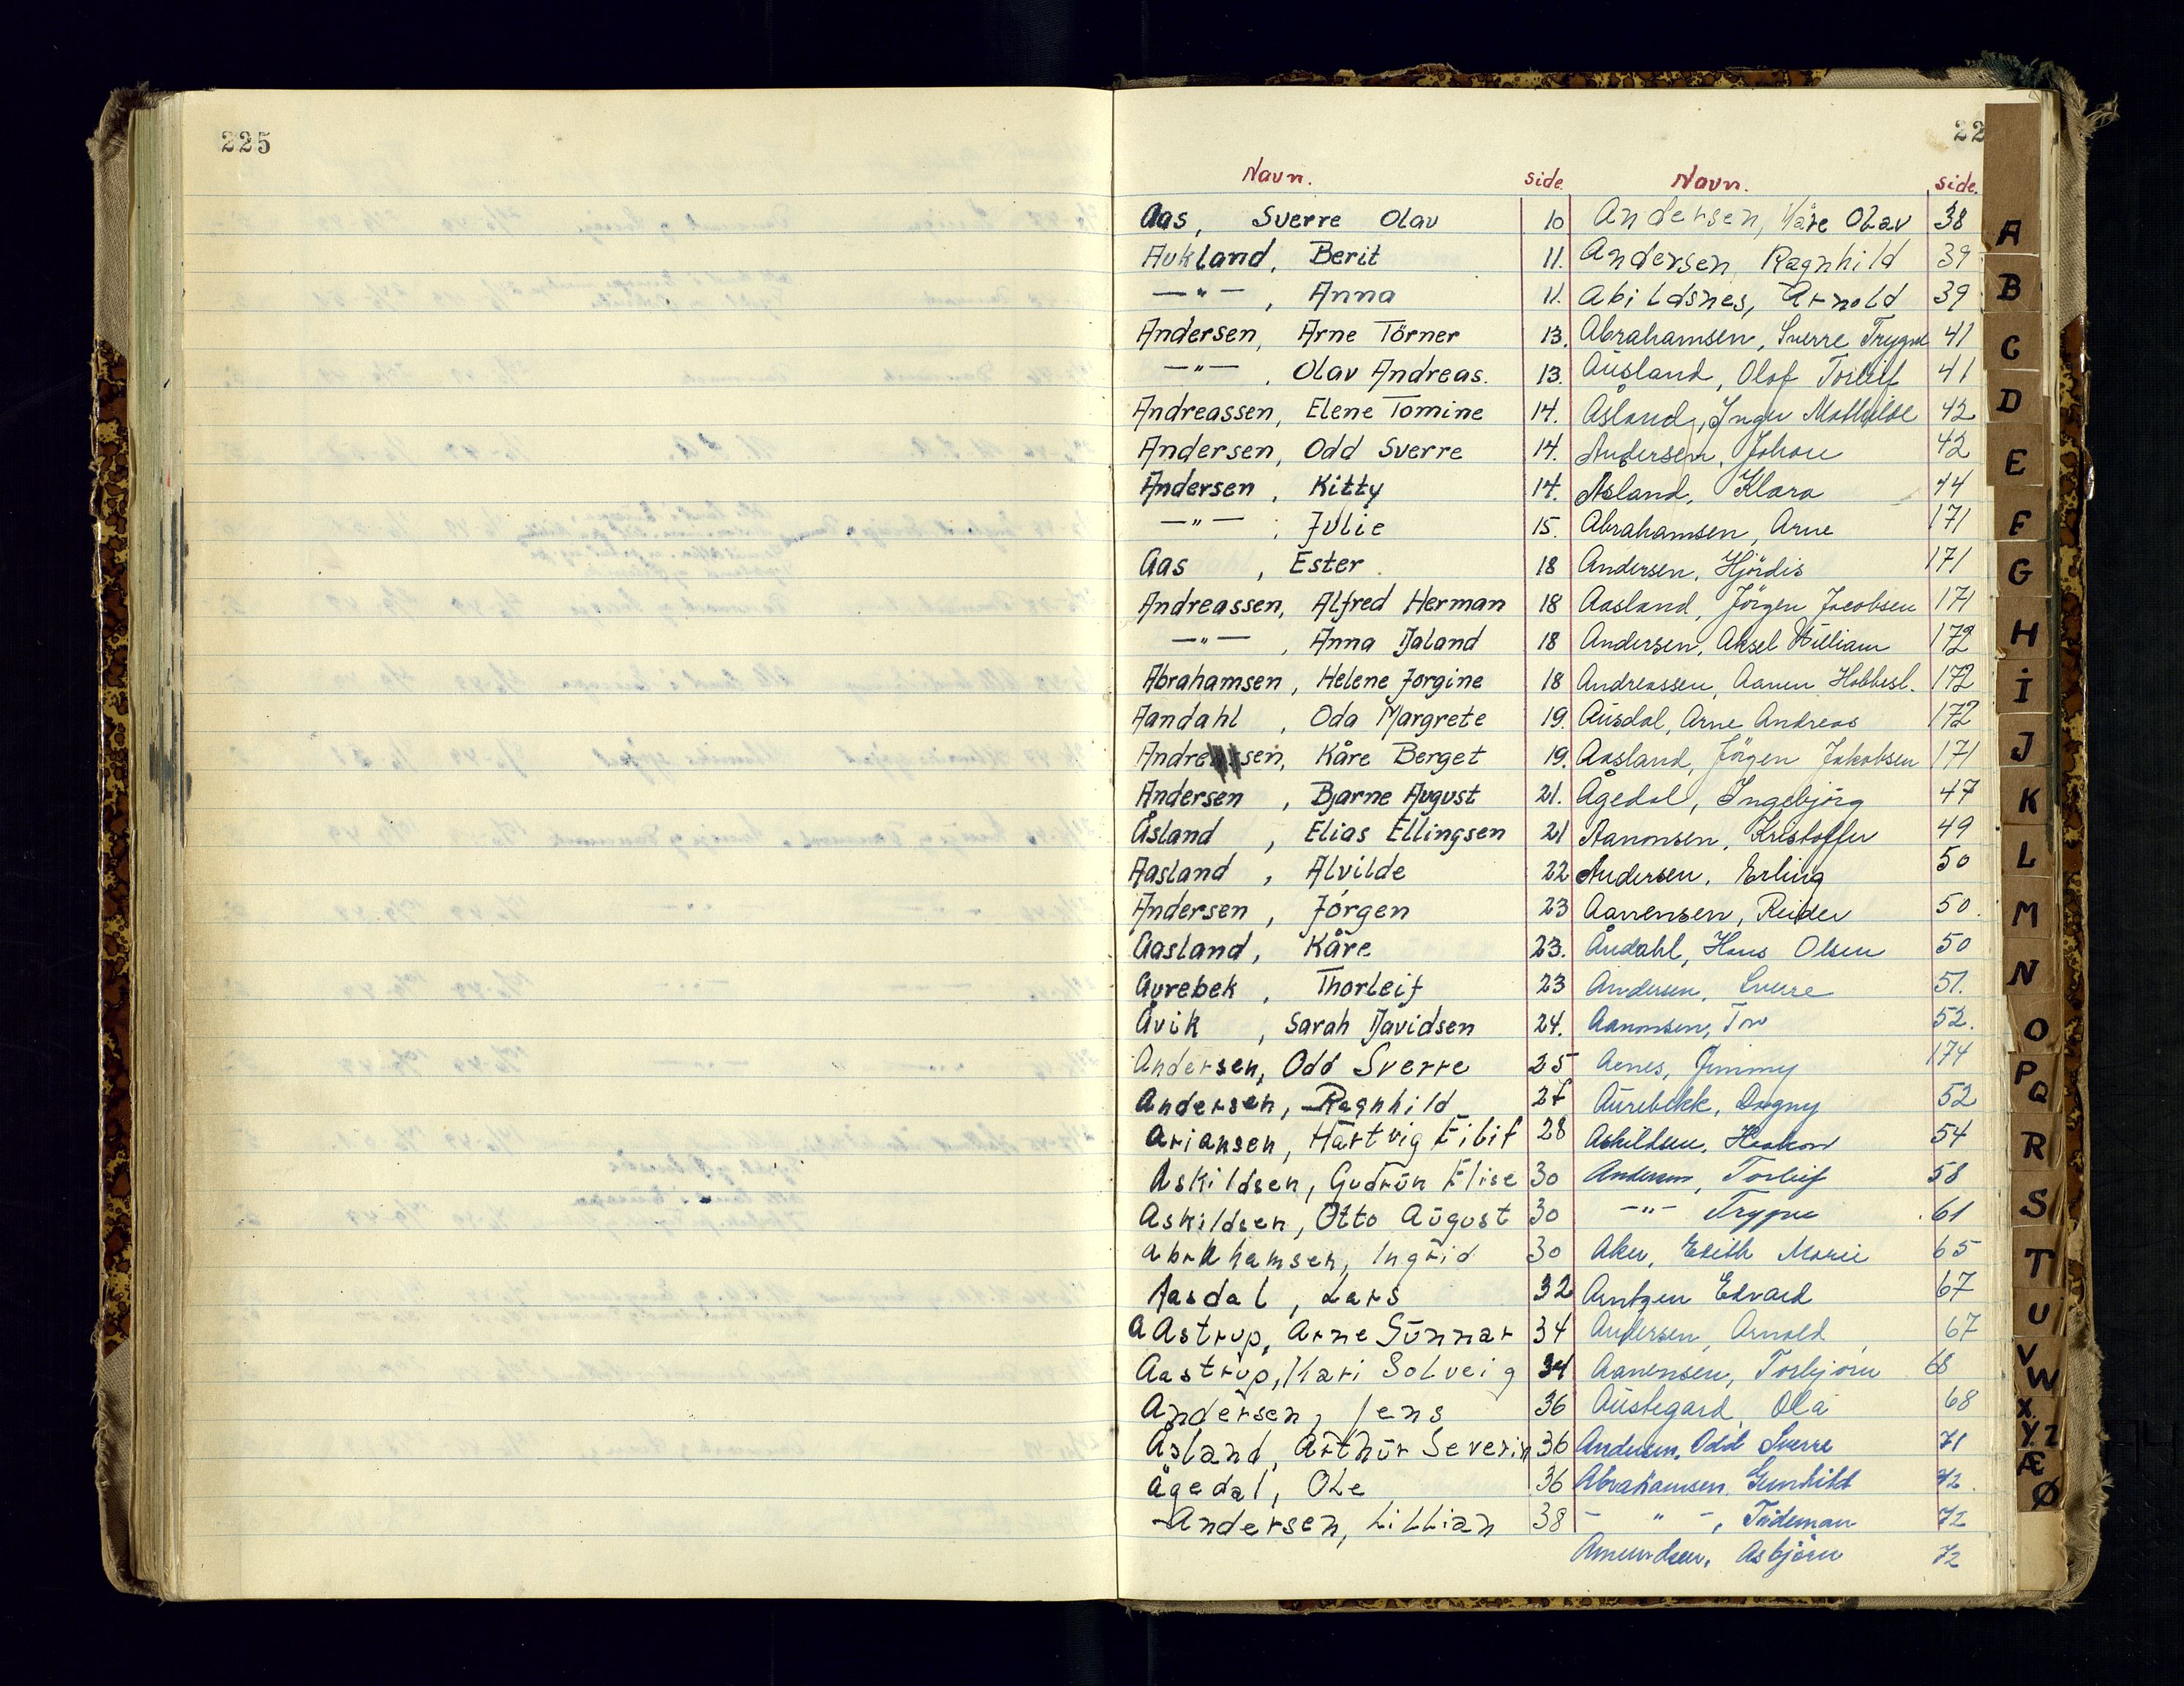 225
22
Navn. side. Navn. side.
Aas, Sverre Olav 10
Aukland, Berit 11.
—"— , Anna 11.
Andersen, Arne Törner 13.
—"— , Olav Andreas. 13.
Andreassen, Elene Tomine 14.
Andersen, Odd Sverre 14.
Andersen, Kitty 14.
—"— , Julie 15.
Aas , Ester. 18
Andreassen, Alfred Herman 18
—"— , Anna Daland 18
Abrahamsen, Helene Jorgine 18
Aandahl , Oda Margrete 19.
Andresen, Kåre Berget 19.
Andersen , Bjarne August 21.
Åsland , Elias Ellingsen 21
Aasland , Alvilde 22
Andersen , Jörgen 23
Aasland, Kåre 23.
Aurebek , Thorleif 23
Åvik , Sarah Davidsen 24.
Andersen, Odd Sverre 25
Andersen, Ragnhild
Ariansen, Hartvig Eilif 28
Askildsen, Gudrūn Elise 30
Askildsen, Otto Aūgust 30
Abrahamsen, Ingrid 30
Aasdal, Lars 32
Aastrup, Arne Gūnnar 34
Aastrup, Kari Solveig 34
Andersen, Jens 36
Åsland, Arthūr Severin 36
Ågedal, Ole 36
Andersen, Lillian 38
Andersen, Kåre Olav 38
Andersen, Ragnhild 39
Abildsnes, Arnold 39
Abrahamsen, Sverre Trygve 41
Aūsland, Olaf Torleif 41
Åsland, Inger Mathilde 42
Andersen, Johan 42
Åsland, Klara 44
Abrahamsen, Arne 171
Andersen, Hjördis 171
Aasland, Jörgen Jacobsen 171
Andersen, Aksel William 172
Andreassen, Aanen Hobbesl. 172
Aūsdal, Arne Andreas 172
Aasland, Jörgen Jakobsen 171
Ågedal, Ingebjörg 47
Aanonsen, Kristoffer 49
Andersen, Erling 50
Aanensen, Reidar 50.
Åndahl, Hans Olsen 50
Andersen, Sverre 51.
Aanonsen, Tor 52.
Aenes, Jimmy 174
Aūrebekk, Dagny 52
Askildsen, Haakon 54
Andersen, Torleif 58
—"— Trygve 61
Aker, Edith Marie 65
Arntzen Edvard 67
Andersen, Arnold 67
Aanensen, Torbjörn 68
Aūstegard, Ola 68
Andersen, Odd Sverre 71
Abrahamsen, Gunhild 72.
— " —, Tideman 72
Amundsen, Asbjörn 72
A
B
C
D
E
F
G
H
I
J
K
L
M
N
O
P
Q
R
S
T
U
V
W
X
Y. Z
Æ
Ø